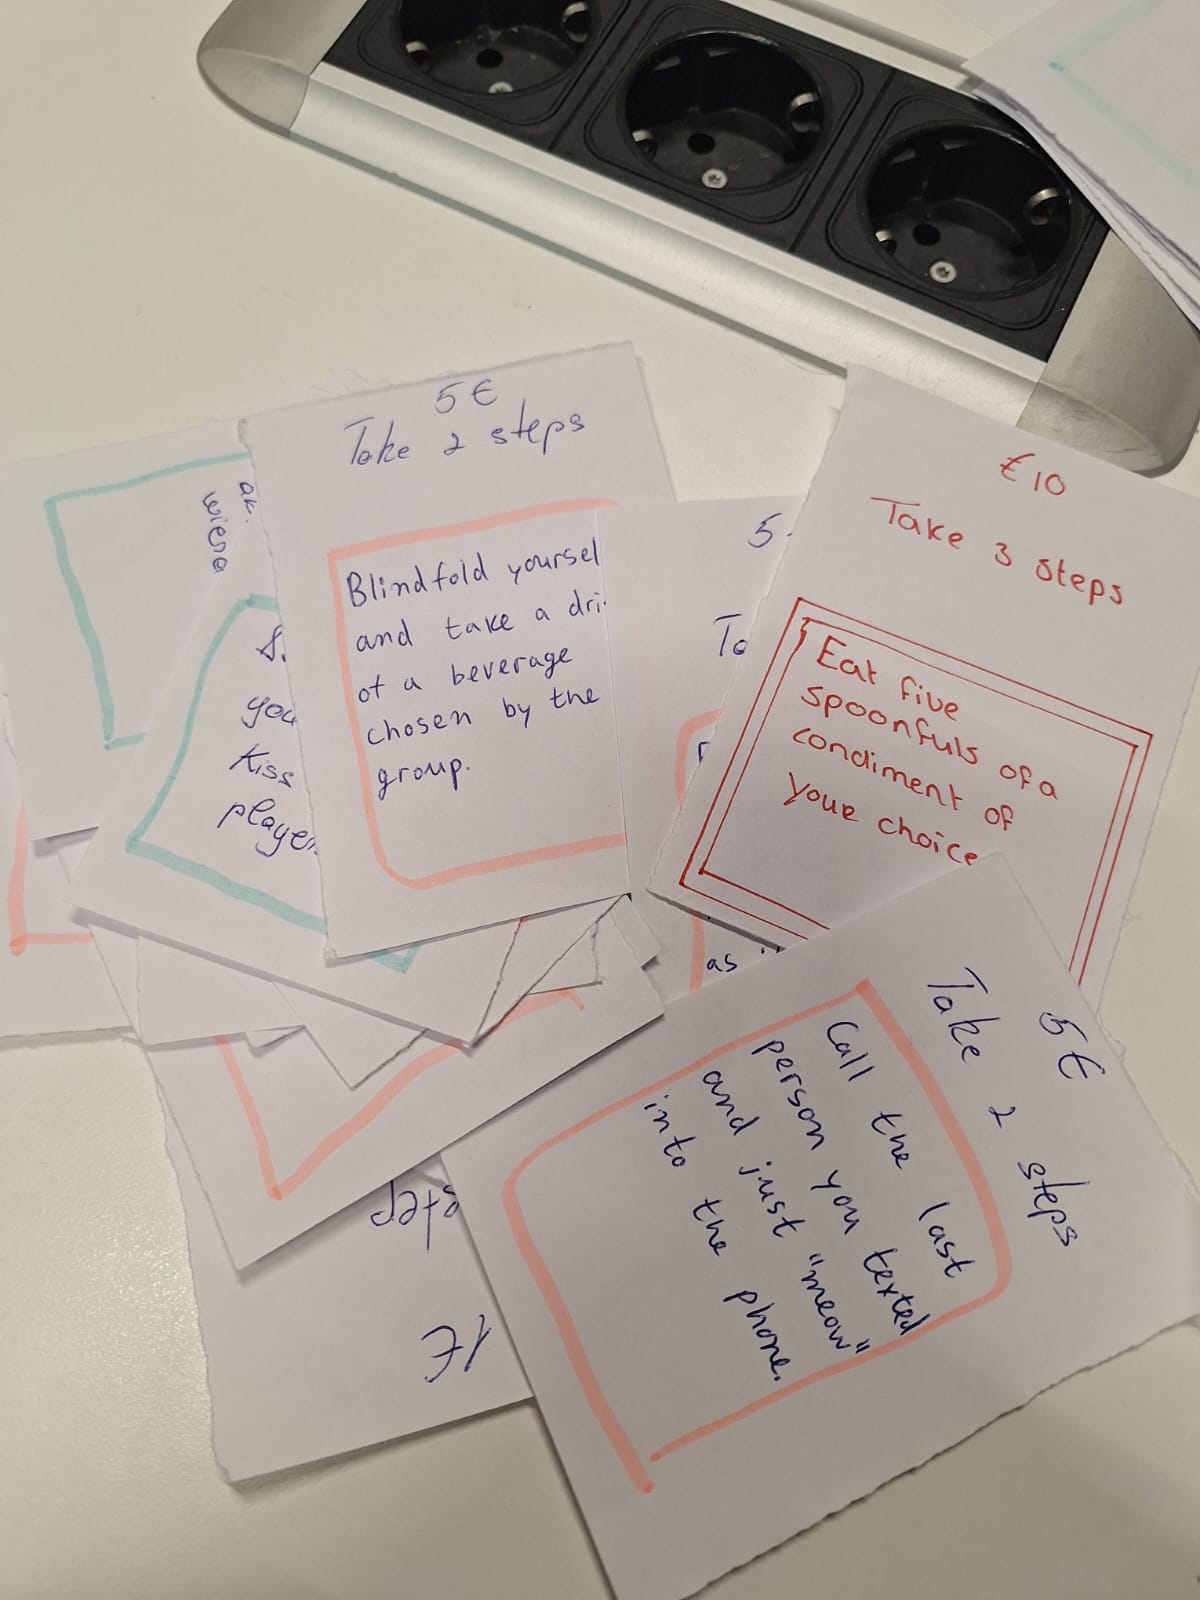 5€
Take 2 steps
Blindfold yoursel
and take a dri
of a beverage
chosen by the
group.
you
Kiss
player
5
To
as
£10
Take 3 steps
Eat five
spoonfuls of a
condiment of
your choice
5€
Take 2 steps
Call the last
person you texted
and just "meow"
into the phone.
step
1€